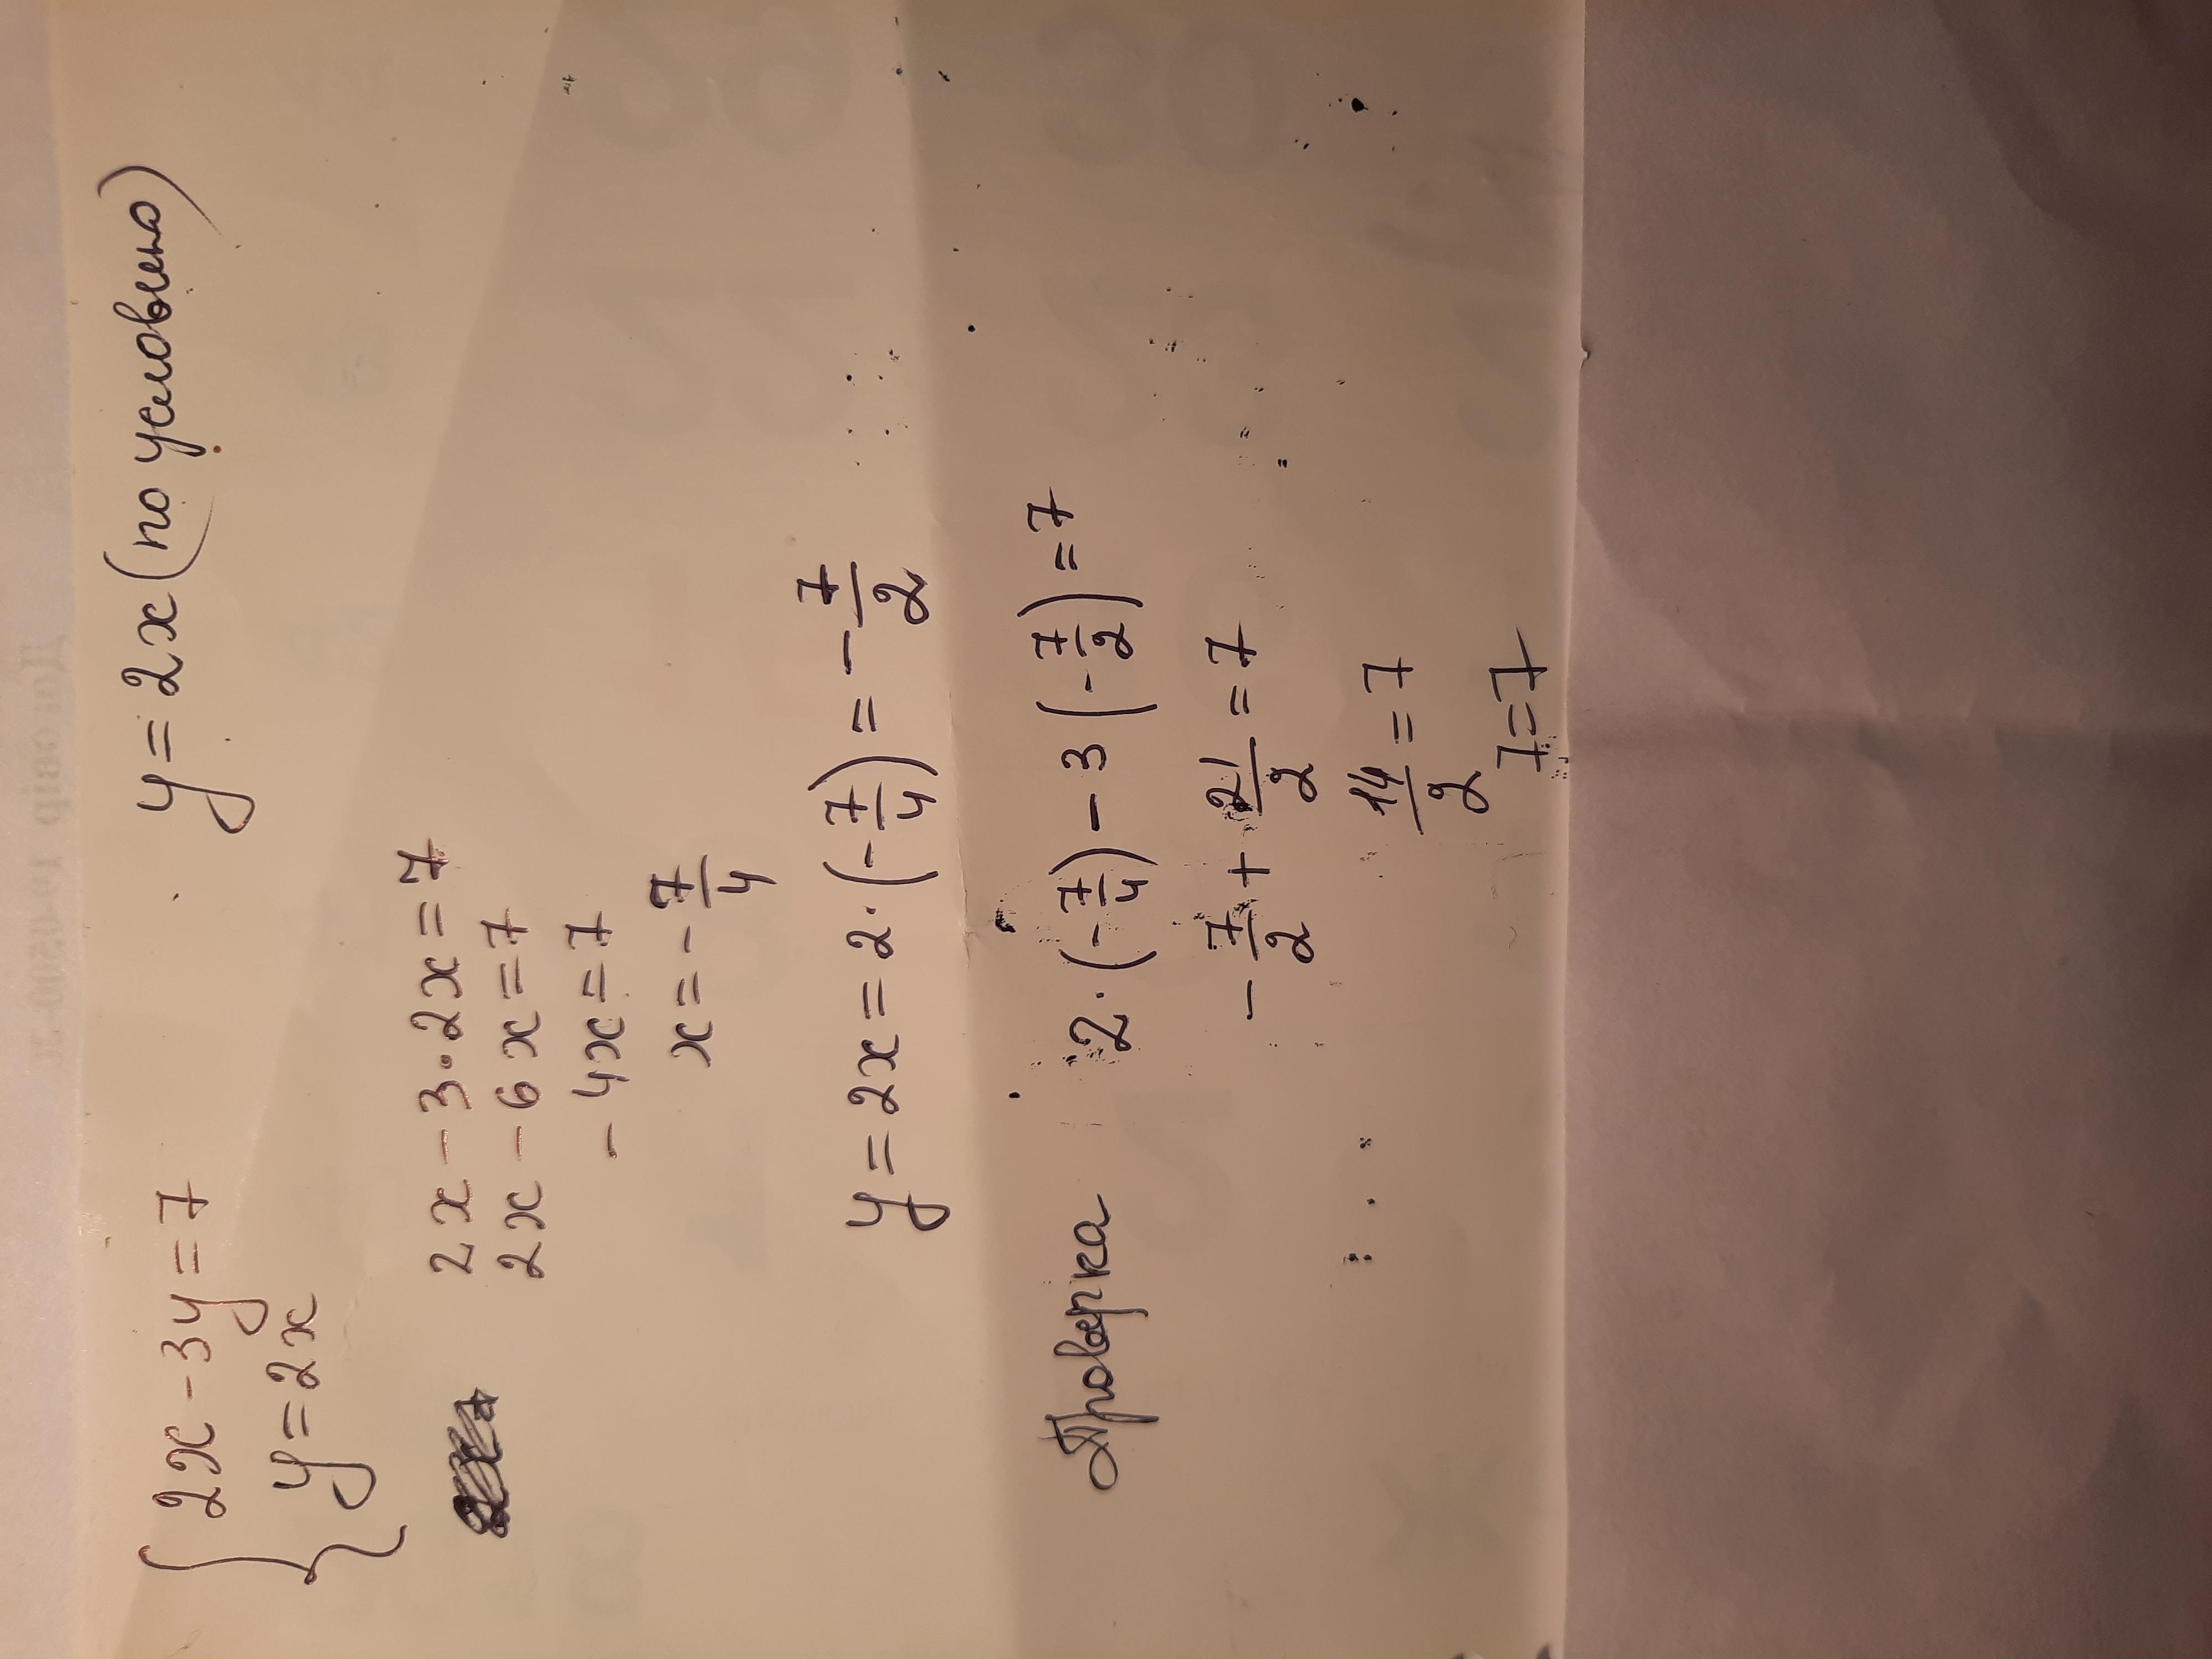 2x - 3y = 7    y = 2x (по условию)
y = 2x
2x - 3·2x = 7
2x - 6x = 7
- 4x = 7
x = - 7/4
y = 2x = 2·(- 7/4) = - 7/2
Проверка 2·(- 7/4) - 3(- 7/2) = 7
- 7/2 + 21/2 = 7
14/2 = 7
7 = 7